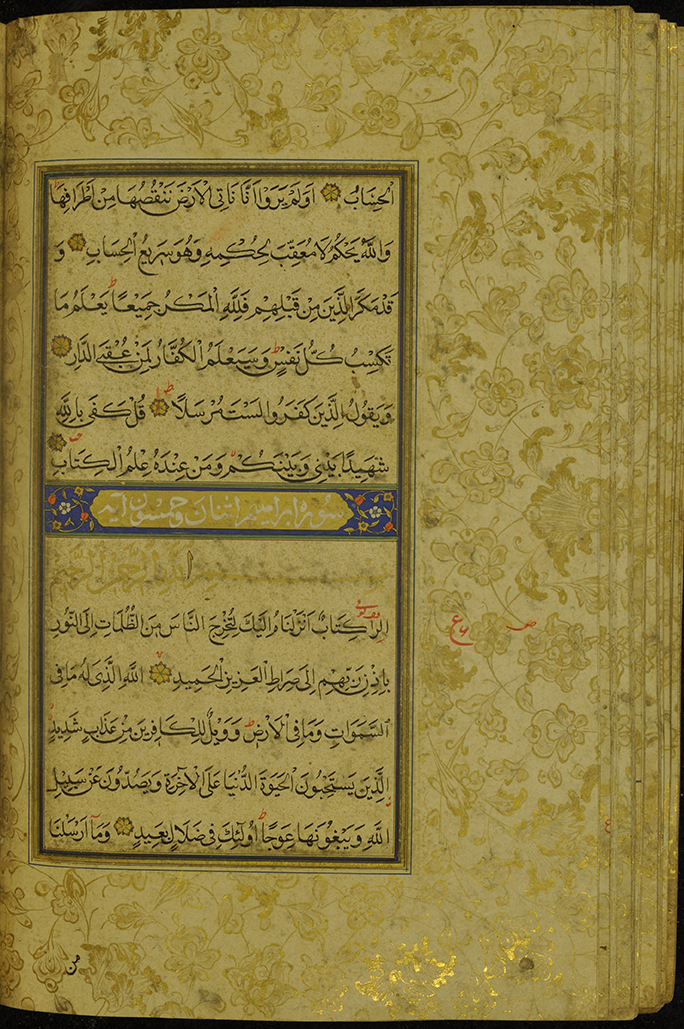 الْحِسَابُ اَوَلَمْ يَرَوْا اَنَّا نَاْتِى الْاَرْضَ نَنْقُصُهَا مِنْ اَطْرَافِهَا
وَاللّٰهُ يَحْكُمُ لَا مُعَقِّبَ لِحُكْمِهِ وَهُوَ سَرِيعُ الْحِسَابِ وَ
قَدْ مَكَرَ الَّذِينَ مِنْ قَبْلِهِمْ فَلِلّٰهِ الْمَكْرُ جَمِيعًا يَعْلَمُ مَا
تَكْسِبُ كُلُّ نَفْسٍ وَسَيَعْلَمُ الْكُفَّارُ لِمَنْ عُقْبَى الدَّارِ
وَيَقُولُ الَّذِينَ كَفَرُوا لَسْتَ مُرْسَلًا قُلْ كَفَى بِاللّٰهِ
شَهِيدًا بَيْنِى وَبَيْنَكُمْ وَمَنْ عِنْدَهُ عِلْمُ الْكِتَابِ
سورة ابراهيم اثنان وخمسون آية
بسم الله الرحمن الرحيم
الر كِتَابٌ اَنْزَلْنَاهُ اِلَيْكَ لِتُخْرِجَ النَّاسَ مِنَ الظُّلُمَاتِ اِلَى النُّورِ
بِاِذْنِ رَبِّهِمْ اِلَى صِرَاطِ الْعَزِيزِ الْحَمِيدِ اللّٰهِ الَّذِى لَهُ مَا فِى
السَّمَوَاتِ وَمَا فِى الْاَرْضِ وَوَيْلٌ لِلْكَافِرِينَ مِنْ عَذَابٍ شَدِيدٍ
الَّذِينَ يَسْتَحِبُّونَ الْحَيَوةَ الدُّنْيَا عَلَى الْاٰخِرَةِ وَيَصُدُّونَ عَنْ سَبِيلِ
اللّٰهِ وَيَبْغُونَهَا عِوَجًا اُولٰئِكَ فِى ضَلَالٍ بَعِيدٍ وَمَا اَرْسَلْنَا
من